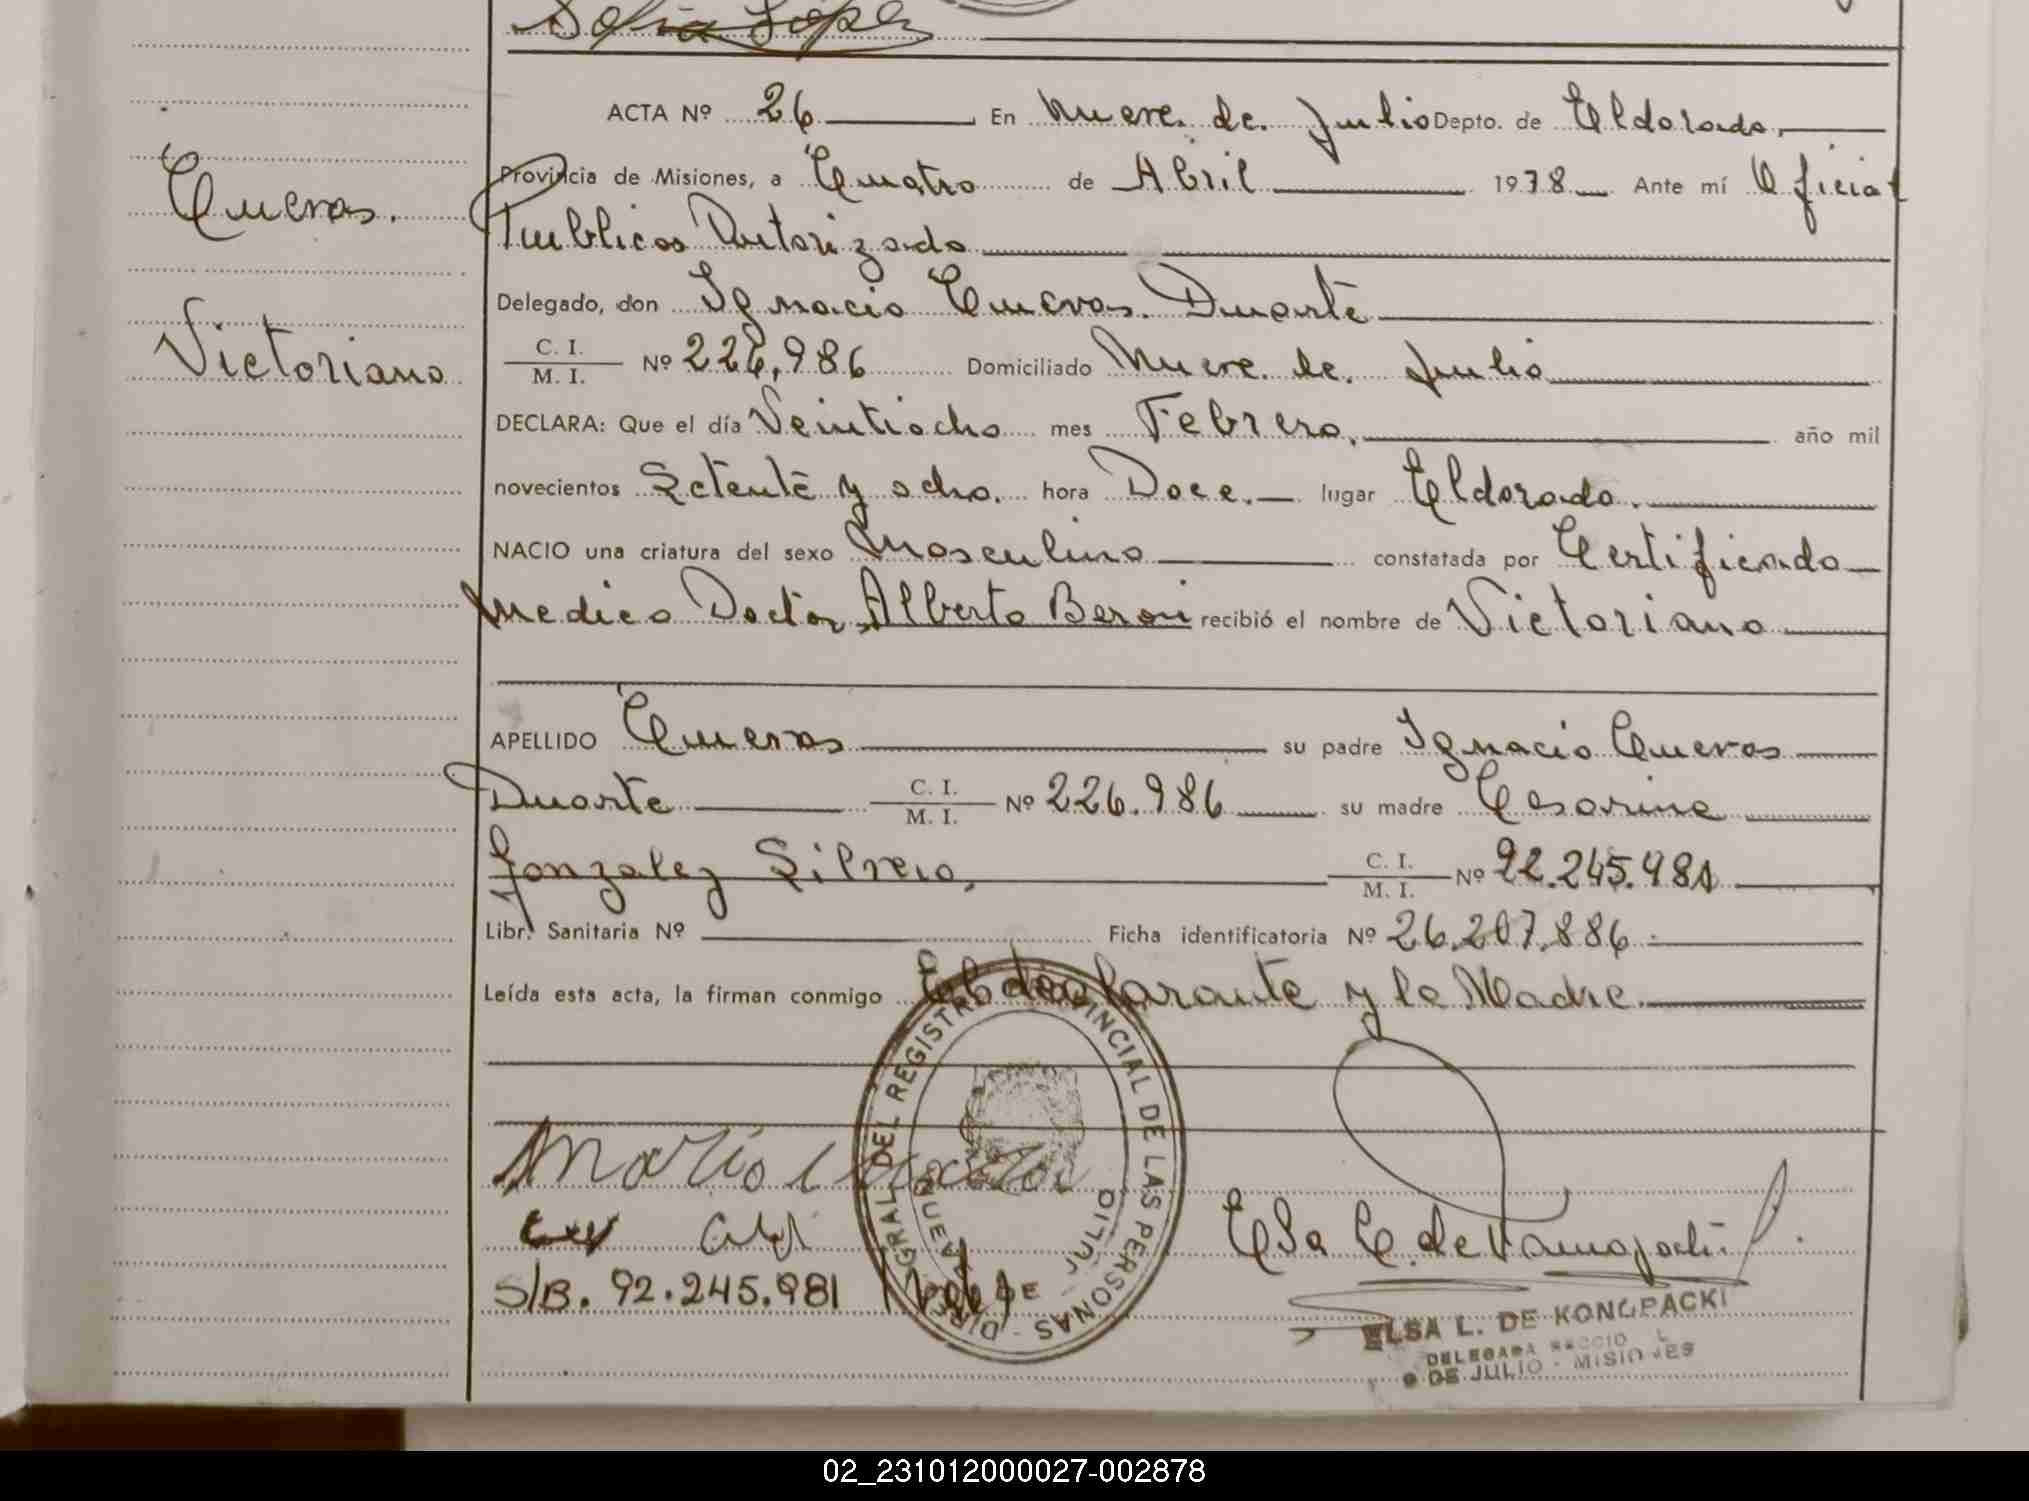 Sofia Lopez
ACTA Nº 26 En Nueve de Julio Depto. de Eldorado,
Provincia de Misiones, a Cuatro de Abril 1978 Ante mí Oficial
Publicos Autorizado
Cuevas.
Delegado, don Ignacio Cuevas Duarte
Victoriano
C. I.
M. I. Nº 226,986 Domiciliado Nueve de Julio
DECLARA: Que el día Veintiocho mes Febrero, año mil
novecientos Setenta y ocho. hora Doce. lugar Eldorado.
NACIO una criatura del sexo Masculino constatada por Certificado
Medico Doctor, Alberto Beron recibió el nombre de Victoriano
APELLIDO Cuevas su padre Ignacio Cuevas
Duarte C. I. M. I. Nº 226.986 su madre Cesarina
Gonzalez Silveio, C. I. M. I. Nº 92.245.981
Libr. Sanitaria Nº Ficha identificatoria Nº 26.207.886
Leída esta acta, la firman conmigo el declarante y la Madre.
DIREC. GRAL DEL REGISTRO PROVINCIAL DE LAS PERSONAS
NUEVE DE JULIO
Mario
S/B. 92.245.981
Elsa L. de Konopacki
ELSA L. DE KONOPACKI
DELEGADA
9 DE JULIO - MISIONES
02_231012000027-002878